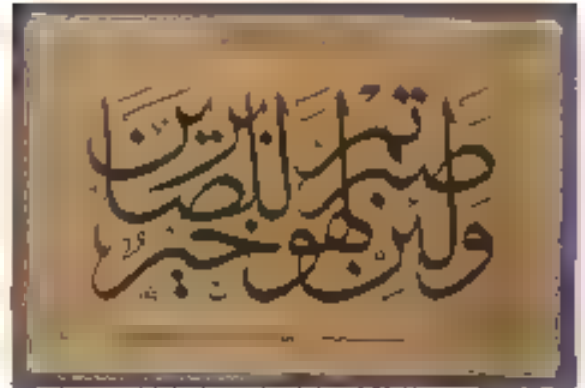 وَلَئِن صَبَرْتُمْ لَهُوَ خَيْرٌ لِّلصَّابِرِينَ